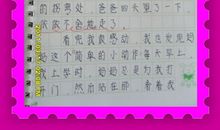 的拐弯处，爸爸回头望了一下，
依依不舍地走了。
看完我很感动，我也发现妈
妈这个简单的小动作每天早上
我上学时，妈妈总是为我打
开门，然后站在那，看着我